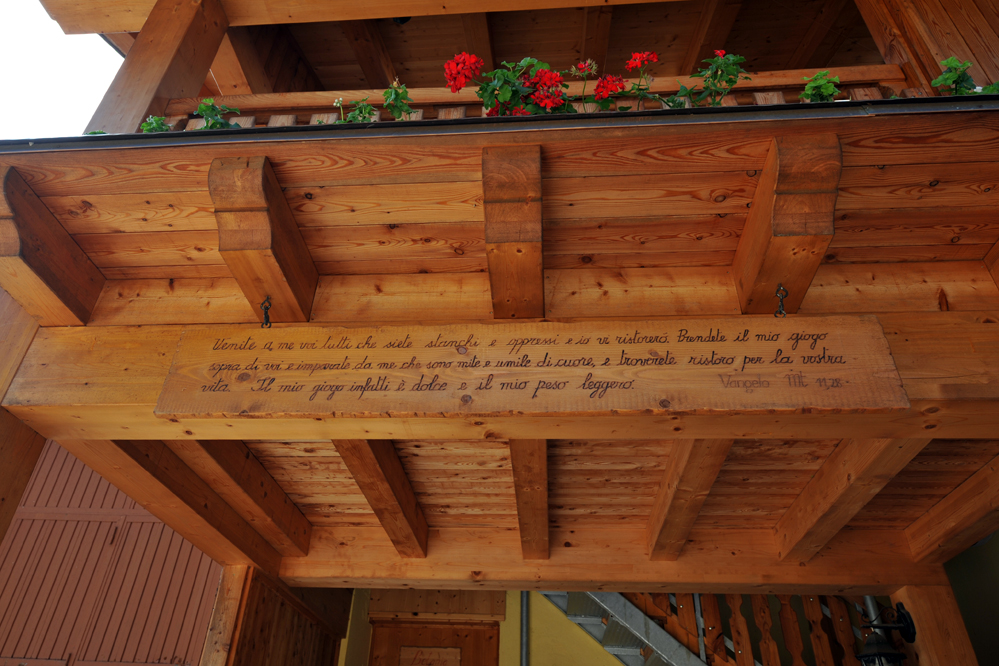 Venite a me voi tutti che siete stanchi e oppressi e io vi ristorerò. Prendete il mio giogo
sopra di voi e imparate da me che sono mite e umile di cuore, e troverete ristoro per la vostra
vita. Il mio giogo infatti è dolce e il mio peso leggero. Vangelo Mt 11,28.